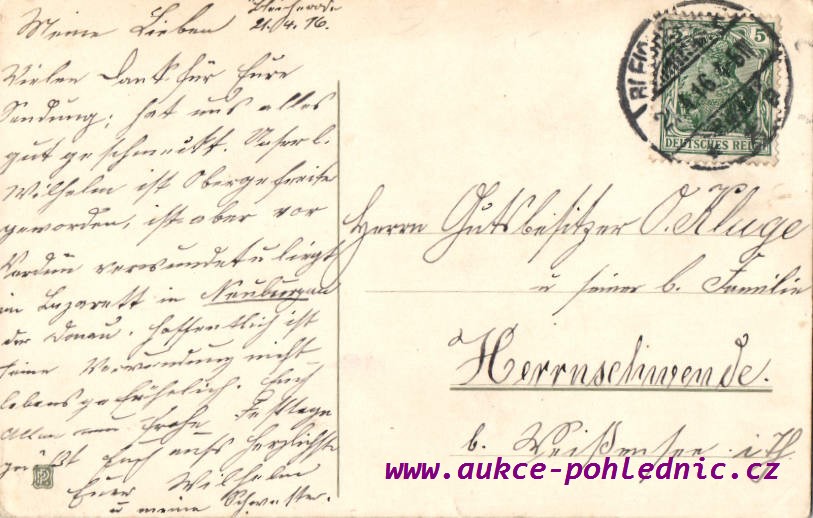 Meine Lieben
Bleicherode
21./4. 16.
Vielen Dank für Eure
Sendung; hat uns alles
gut geschmeckt. Unser l.
Wilhelm ist Obergefreite
geworden, ist aber vor
Verdun verwundet u liegt
im Lazarett in Neuburg an
der Donau. Hoffentlich ist
seine Verwundung nicht
lebensgefährlich. Euch
Allen frohe Festtage
grüßt Euch aufs herzlichste
Euer Wilhelm
u meine Schwester.
5
DEUTSCHES REICH
Herrn Gutsbesitzer O. Kluge
u seiner l. Familie
Herrnschwende.
b. Weißensee i. Th.
www.aukce-pohlednic.cz